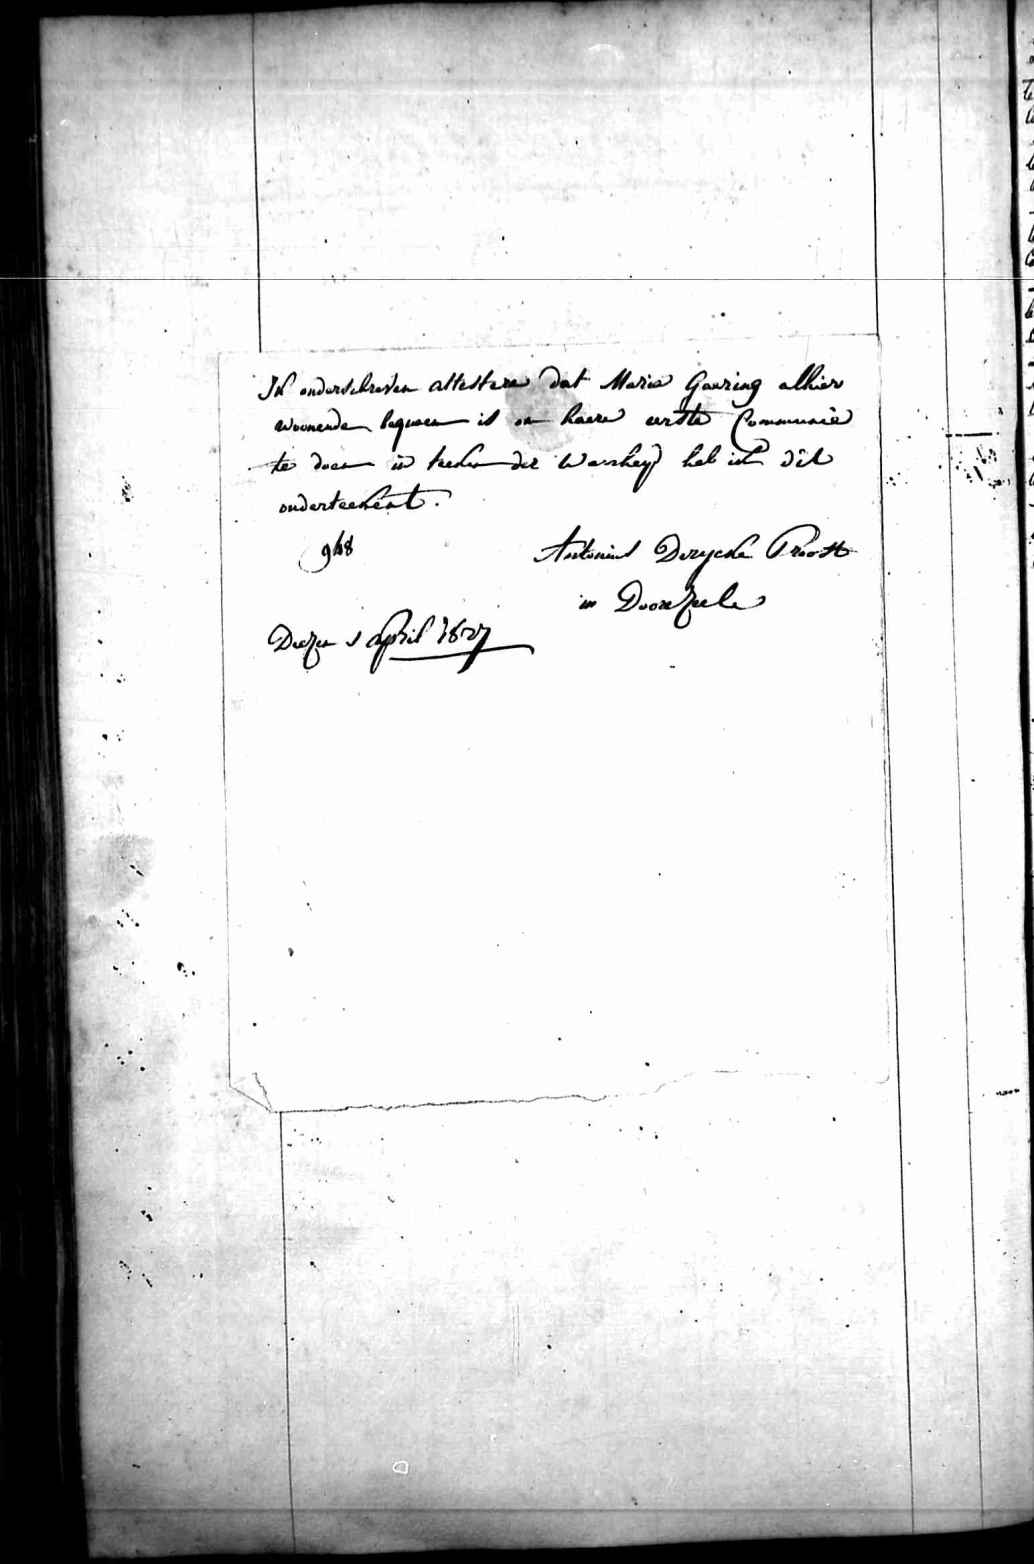 Ik onderschreven attestere dat Marie Gaering alhier
woonende bequaem is om haere eerste Communie
te doen in teeken der Waerheyd heb ick dit
onderteekent.
948
Antonius Derycke Proost
in Doorezeele
Dezen 1 april 1827